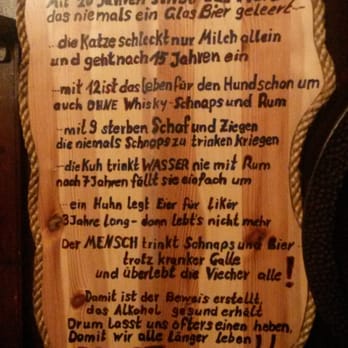 Mit 20 Jahren stirbt das
das niemals ein Glas Bier geleert
...die Katze schleckt nur Milch allein
und geht nach 15 Jahren ein
...mit 12 ist das Leben für den Hund schon um
auch OHNE Whisky-Schnaps und Rum
...mit 9 sterben Schaf und Ziegen
die niemals Schnaps zu trinken kriegen
...die Kuh trinkt WASSER nie mit Rum
nach 7 Jahren fällt sie einfach um
... ein Huhn legt Eier für Likör
3 Jahre lang - dann lebt's nicht mehr
Der MENSCH trinkt Schnaps und Bier
trotz kranker Galle
und überlebt die Viecher alle!
Damit ist der Beweis erstellt,
das Alkohol gesund erhält
Drum lasst uns öfters einen heben,
Damit wir alle länger leben!!